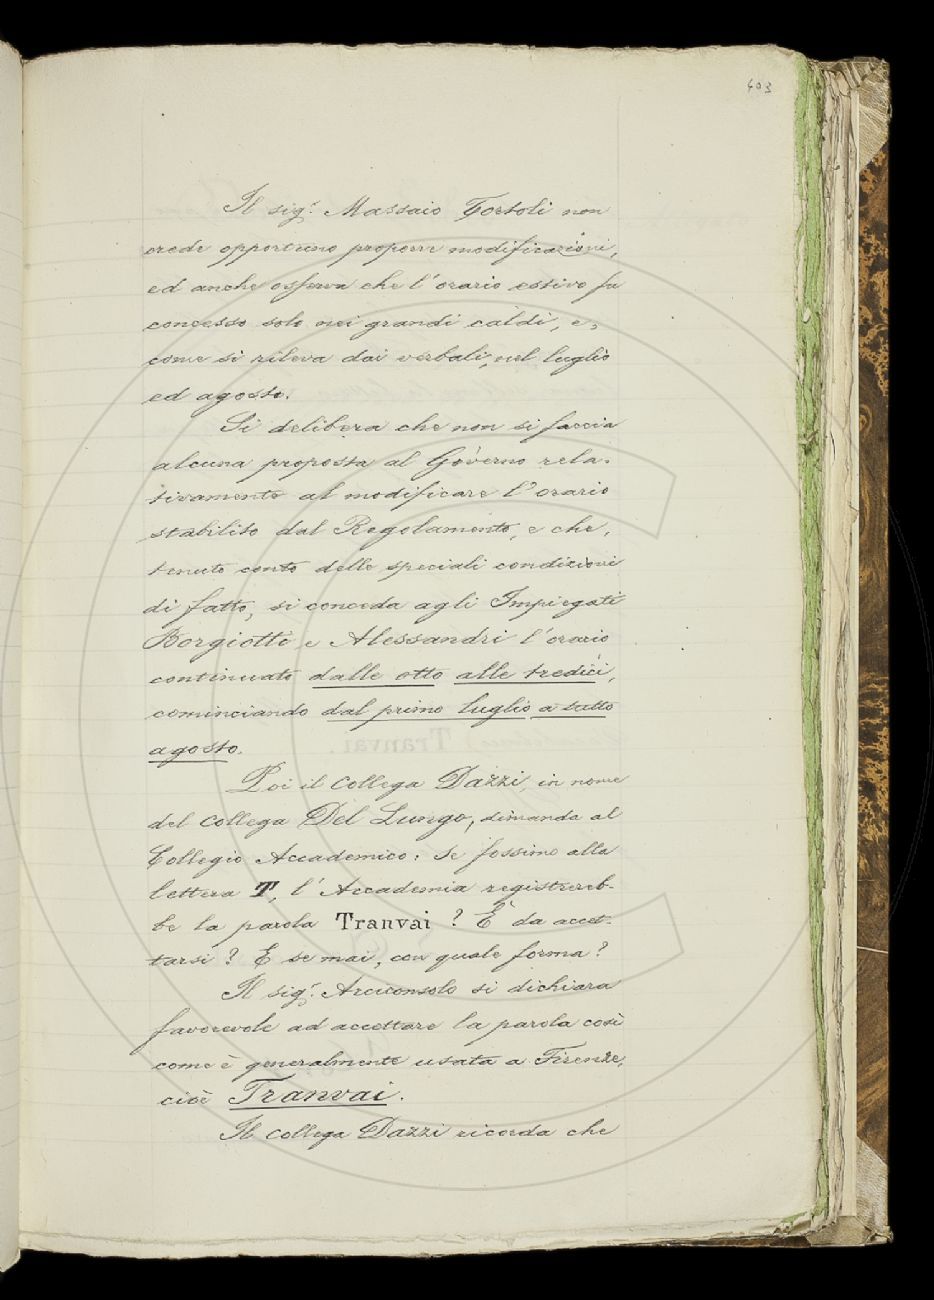 403
Il sig.r Massaio Tortoli non
crede opportuno proporre modificazioni,
ed anche osserva che l'orario estivo fu
concesso solo nei grandi caldi, e,
come si rileva dai verbali, nel luglio
ed agosto.
Si delibera che non si faccia
alcuna proposta al Governo rela-
tivamente al modificare l'orario
stabilito dal Regolamento, e che,
tenuto conto delle speciali condizioni
di fatto, si conceda agli Impiegati
Borgiotti e Alessandri l'orario
continuato dalle otto alle tredici,
cominciando dal primo luglio a tutto
agosto.
Poi il collega Dazzi, in nome
del collega Del Lungo, dimanda al
Collegio Accademico: se fossimo alla
lettera T, l'Accademia registrereb-
be la parola Tranvai? È da accet-
tarsi? E se mai, con quale forma?
Il sig.r Arciconsolo si dichiara
favorevole ad accettare la parola così
come è generalmente usata a Firenze,
cioè Tranvai.
Il collega Dazzi ricorda che